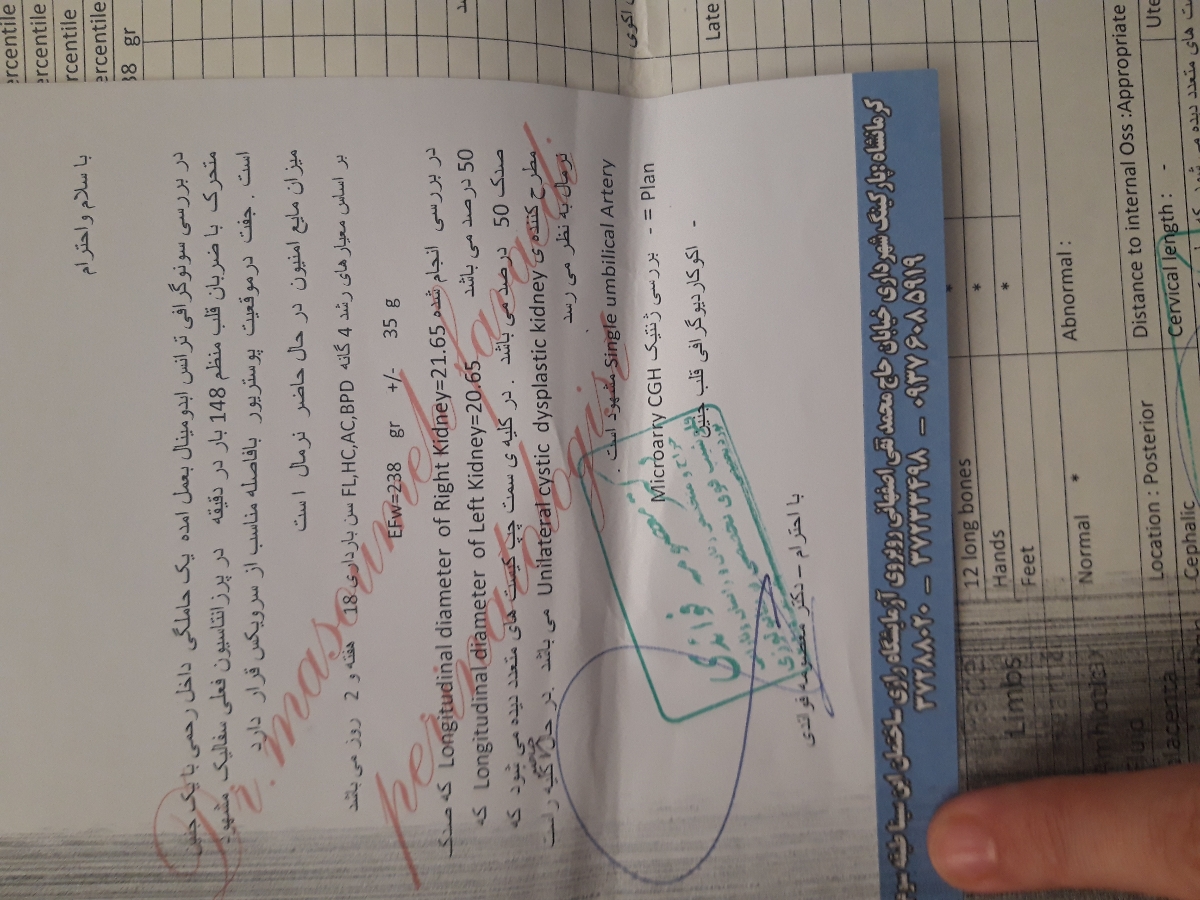 با سلام و احترام
در بررسی سونوگرافی ترانس ابدومینال بعمل امده یک حاملگی داخل رحمی با یک جنین
متحرک با ضربان قلب منظم 148 بار در دقیقه در پرزانتاسیون فعلی سفالیک مشهود
است . جفت درموقعیت پوستریور بافاصله مناسب از سرویکس قرار دارد
میزان مایع امنیون در حال حاضر نرمال است
بر اساس معیار های رشد 4 گانه FL,HC,AC,BPD سن بارداری 18 هفته و 2 روز می باشد
EFw=238 gr +/- 35 g
در بررسی انجام شده Longitudinal diameter of Right Kidney=21.65 که صدک
50 درصد می باشد Longitudinal diameter of Left Kidney=20.65 که
صدک 50 درصد می باشد . در کلیه ی سمت چپ کیست های متعدد دیده می شود که
مطرح کننده ی Unilateral cystic dysplastic kidney می باشد .در حال حاضر کلیه راست
نرمال به نظر می رسد
Single umbilical Artery مشهود است .
Plan = - بررسی ژنتیک Microarry CGH
- اکوکاردیوگرافی قلب جنین
با احترام – دکتر معصومه فرائدی
Dr. masoumeh
perinatologis
دکتر معصومه فرائدی
کرمانشاه:پارکینگ شهرداری خیابان حاج محمد تقی اصفهانی روبروی آزمایشگاه رازی ساختمان ابن سینا طبقه سوم
۳۷۲۸۸۰۲۰ – ۳۷۲۳۳۴۹۸ – ۰۹۳۷۶۰۸۵۹۱۹
ercentile
ercentile
ercentile
ercentile
38 gr
Late
12 long bones *
Hands *
Feet *
Limbs
Normal * Abnormal :
Location : Posterior Distance to internal Oss :Appropriate
Cephalic Cervical length : - Ute
Fluid